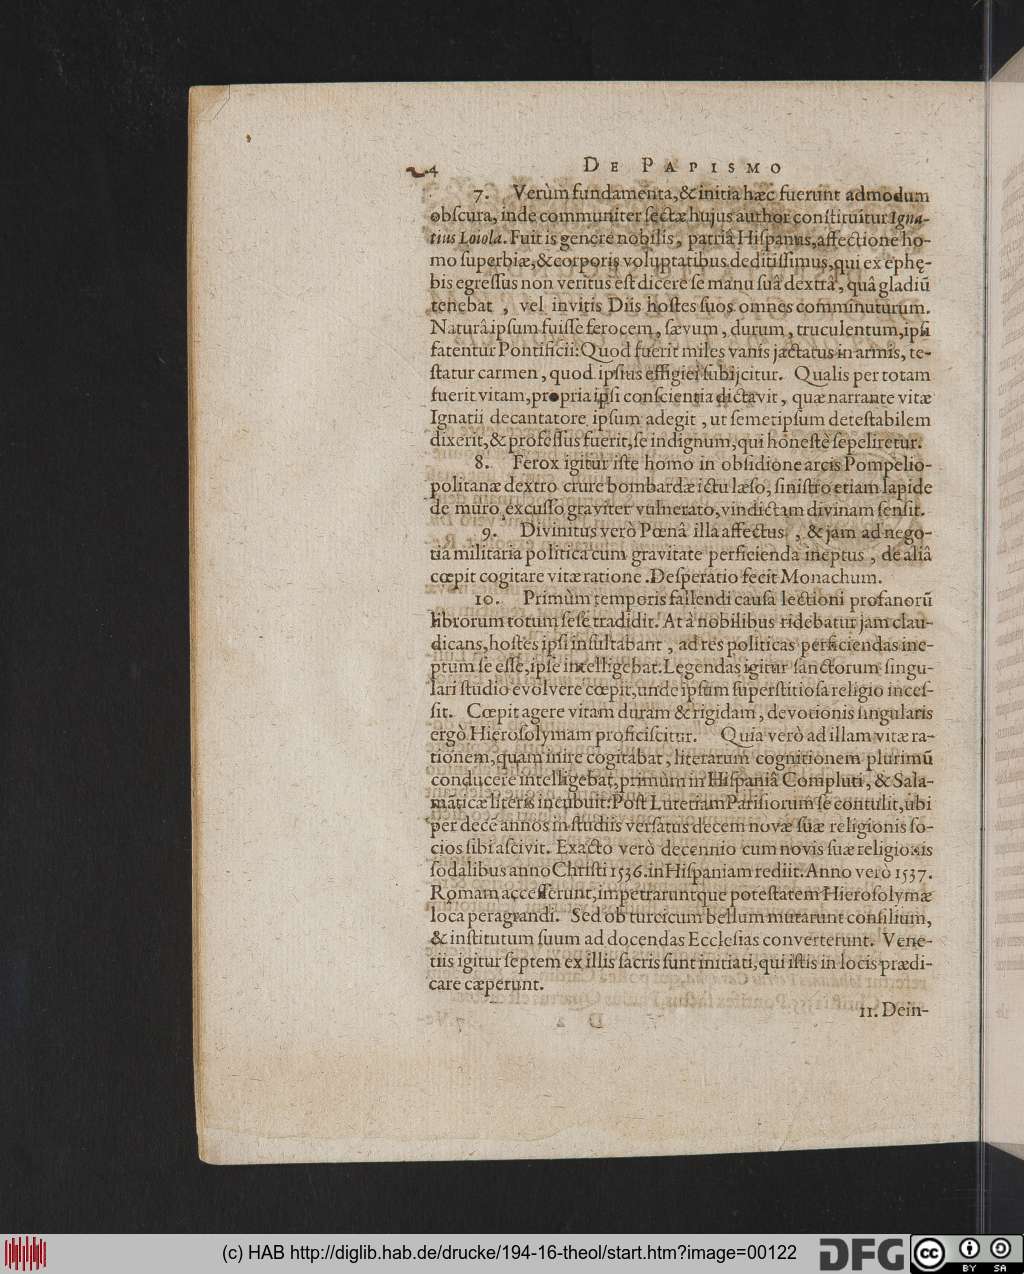 4 DE PAPISMO
7. Verùm fundamenta, & initia hæc fuerunt admodum
obſcura, inde communiter ſectæ hujus author conſtituitur Igna-
tius Loiola. Fuit is genere nobilis, patriâ Hiſpanus, affectione ho-
mo ſuperbiæ, & corporis voluptatibus deditiſſimus, qui ex ephę-
bis egreſſus non veritus eſt dicere ſe manu ſuâ dextrâ, quâ gladiũ
tenebat, vel invitis Diis hoſtes ſuos omnes comminuturum.
Naturâ ipſum fuiſſe ferocem, ſævum, durum, truculentum, ipſi
fatentur Pontificii: Quod fuerit miles vanis jactatus in armis, te-
ſtatur carmen, quod ipſius effigiei ſubijcitur. Qualis per totam
fuerit vitam, propria ipſi conſcientia dictavit, quæ narrante vitæ
Ignatii decantatore ipſum adegit, ut ſemetipſum deteſtabilem
dixerit, & profeſſus fuerit, ſe indignum, qui honeſtè ſepeliretur.
8. Ferox igitur iſte homo in obſidione arcis Pompelio-
politanæ dextro crure bombardæ ictu læſo, ſiniſtro etiam lapide
de muro excuſſo graviter vulnerato, vindictam divinam ſenſit.
9. Divinitus verò Pœnâ illa affectus, & jam ad nego-
tia militaria politica cum gravitate perficienda ineptus, de aliâ
cœpit cogitare vitæ ratione. Deſperatio fecit Monachum.
10. Primùm temporis fallendi causâ lectioni profanorũ
librorum totum ſeſe tradidit. At â nobilibus ridebatur jam clau-
dicans, hoſtes ipſi inſultabant, ad res politicas perficiendas ine-
ptum ſe eſſe, ipſe intelligebat. Legendas igitur ſanctorum ſingu-
lari ſtudio evolvere cœpit, unde ipſum ſuperſtitioſa religio inceſ-
ſit. Cœpit agere vitam duram & rigidam, devotionis ſingularis
ergò Hieroſolymam proficiſcitur. Quia verò ad illam vitæ ra-
tionem, quam inire cogitabat, literarum cognitionem plurimũ
conducere intelligebat, primùm in Hiſpaniâ Compluti, & Sala-
mãticæ literis incubuit: Poſt Lutetiam Pariſiorum ſe contulit, ubi
per decẽ annos in ſtudiis verſatus decem novæ ſuæ religionis ſo-
cios ſibi aſcivit. Exacto verò decennio cum novis ſuæ religionis
ſodalibus anno Chriſti 1536. in Hiſpaniam rediit. Anno verò 1537.
Romam acceſſerunt, impetraruntque poteſtatem Hieroſolymæ
loca peragrandi. Sed ob turcicum bellum mutarunt conſilium,
& inſtitutum ſuum ad docendas Eccleſias converterunt. Vene-
tiis igitur ſeptem ex illis ſacris ſunt initiati, qui iſtis in locis prædi-
care cæperunt.
11. Dein-
(c) HAB http://diglib.hab.de/drucke/194-16-theol/start.htm?image=00122
DFG
cc BY SA